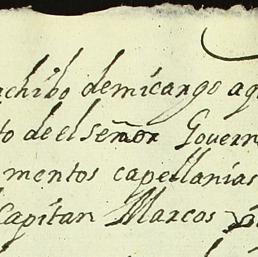 achibo de mi cargo aq
to de el señor Govern
mentos capellanias
Capitan Marcos